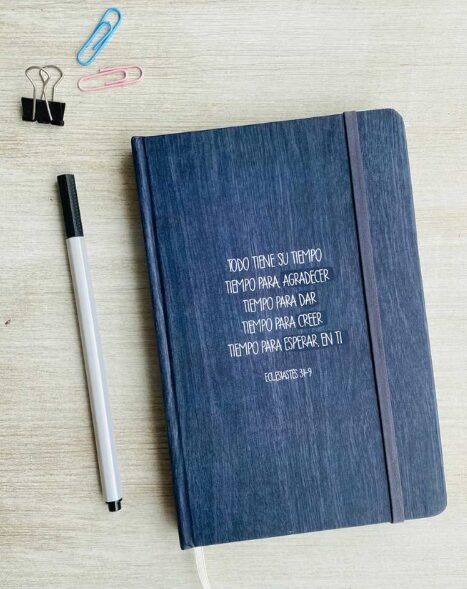 TODO TIENE SU TIEMPO
TIEMPO PARA AGRADECER
TIEMPO PARA DAR
TIEMPO PARA CREER
TIEMPO PARA ESPERAR EN TI
ECLESIASTES 3:1-9